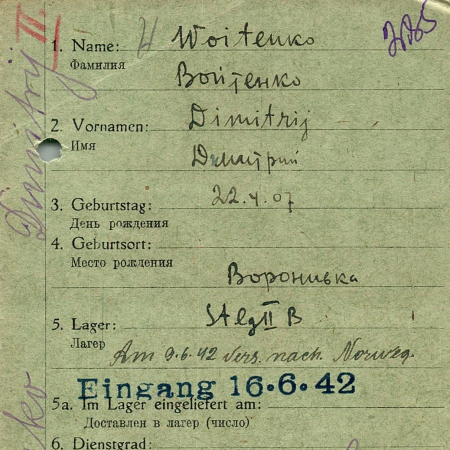 II.
1. Name: Woitenko
Фамилия
Войтенко
2. Vornamen: Dimitrij
Имя
Дмитрий
3. Geburtstag: 22.4.07
День рождения
4. Geburtsort:
Место рождения
Воронивка
5. Lager: Stlg II B
Лагер
Am 9.6.42 vers. nach Norweg.
Eingang 16.6.42
5a. Im Lager eingeliefert am:
Доставлен в лагер (число)
6. Dienstgrad:
Dimitrij